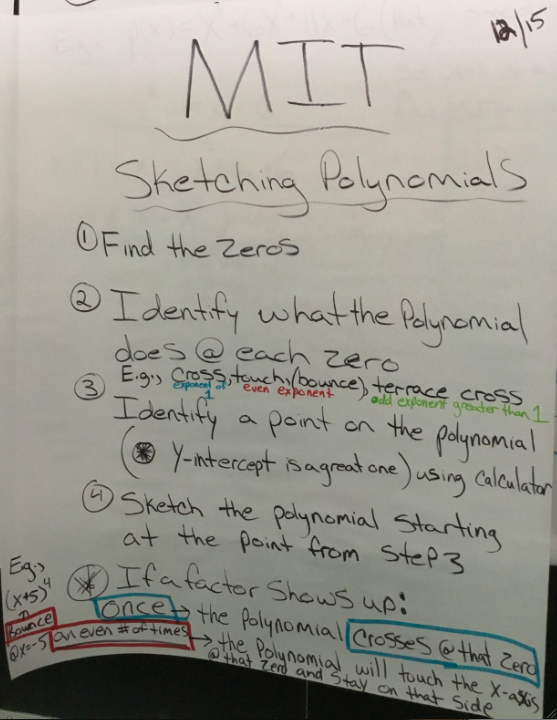 12/15
MIT
Sketching Polynomials
① Find the Zeros
② Identify what the Polynomial
does @ each zero
E.g., Cross, touch, (bounce), terrace cross
exponent of 1 even exponent odd exponent greater than 1
③ Identify a point on the polynomial
(* Y-intercept is a great one) using Calculator
④ Sketch the polynomial starting
at the point from Step 3
* If a factor Shows up:
once → the Polynomial Crosses @ that Zero
an even # of times → the Polynomial will touch the x-axis
@ that Zero and Stay on that side
Eg.,
(x+5)⁴
Bounce
@x=-5